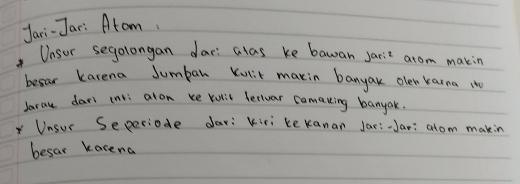 Jari-Jari Atom :
* Unsur segolongan dari atas ke bawah jari² atom makin
besar karena Jumbah kulit makin banyak oleh karna itu
Jarak dari inti atom ke kulit terluar semaking banyak.
* Unsur Seperiode dari kiri ke kanan jari-jari atom makin
besar karena